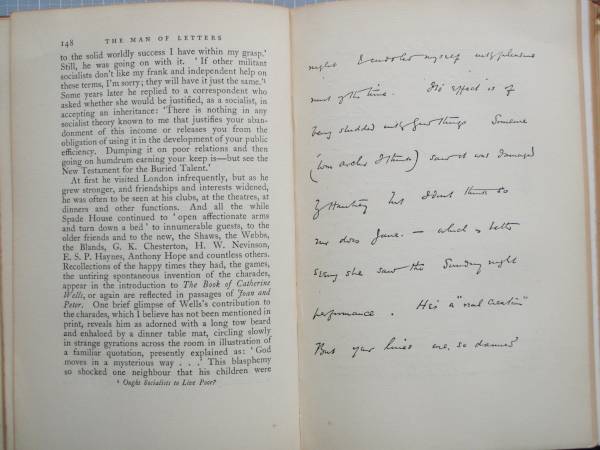 148 THE MAN OF LETTERS
to the solid worldly success I have within my grasp.'
Still, he was going on with it. 'If other militant
socialists don't like my frank and independent help on
these terms, I'm sorry; they will have it just the same.'¹
Some years later he replied to a correspondent who
asked whether she would be justified, as a socialist, in
accepting an inheritance: 'There is nothing in any
socialist theory known to me that justifies your aban-
donment of this income or releases you from the
obligation of using it in the development of your public
efficiency. Dumping it on poor relations and then
going on humdrum earning your keep is—but see the
New Testament for the Buried Talent.'
At first he visited London infrequently, but as he
grew stronger, and friendships and interests widened,
he was often to be seen at his clubs, at the theatres, at
dinners and other functions. And all the while
Spade House continued to 'open affectionate arms
and turn down a bed' to innumerable guests, to the
older friends and to the new, the Shaws, the Webbs,
the Blands, G. K. Chesterton, H. W. Nevinson,
E. S. P. Haynes, Anthony Hope and countless others.
Recollections of the happy times they had, the games,
the untiring spontaneous invention of the charades,
appear in the introduction to The Book of Catherine
Wells, or again are reflected in passages of Joan and
Peter. One brief glimpse of Wells's contribution to
the charades, which I believe has not been mentioned in
print, reveals him as adorned with a long tow beard
and enhaloed by a dinner table mat, circling slowly
in strange gyrations across the room in illustration of
a familiar quotation, presently explained as: 'God
moves in a mysterious way . . .' This blasphemy
so shocked one neighbour that his children were
¹ Ought Socialists to Live Poor?
night I myself
most of the time. Its effect is of
being studded with good things Someone
(Wm Archer I think) said it was damaged
by but I don't think so
nor does Jane. — which is better
seeing she saw the Sunday night
performance. He's a "real creation"
But your lines are so damned